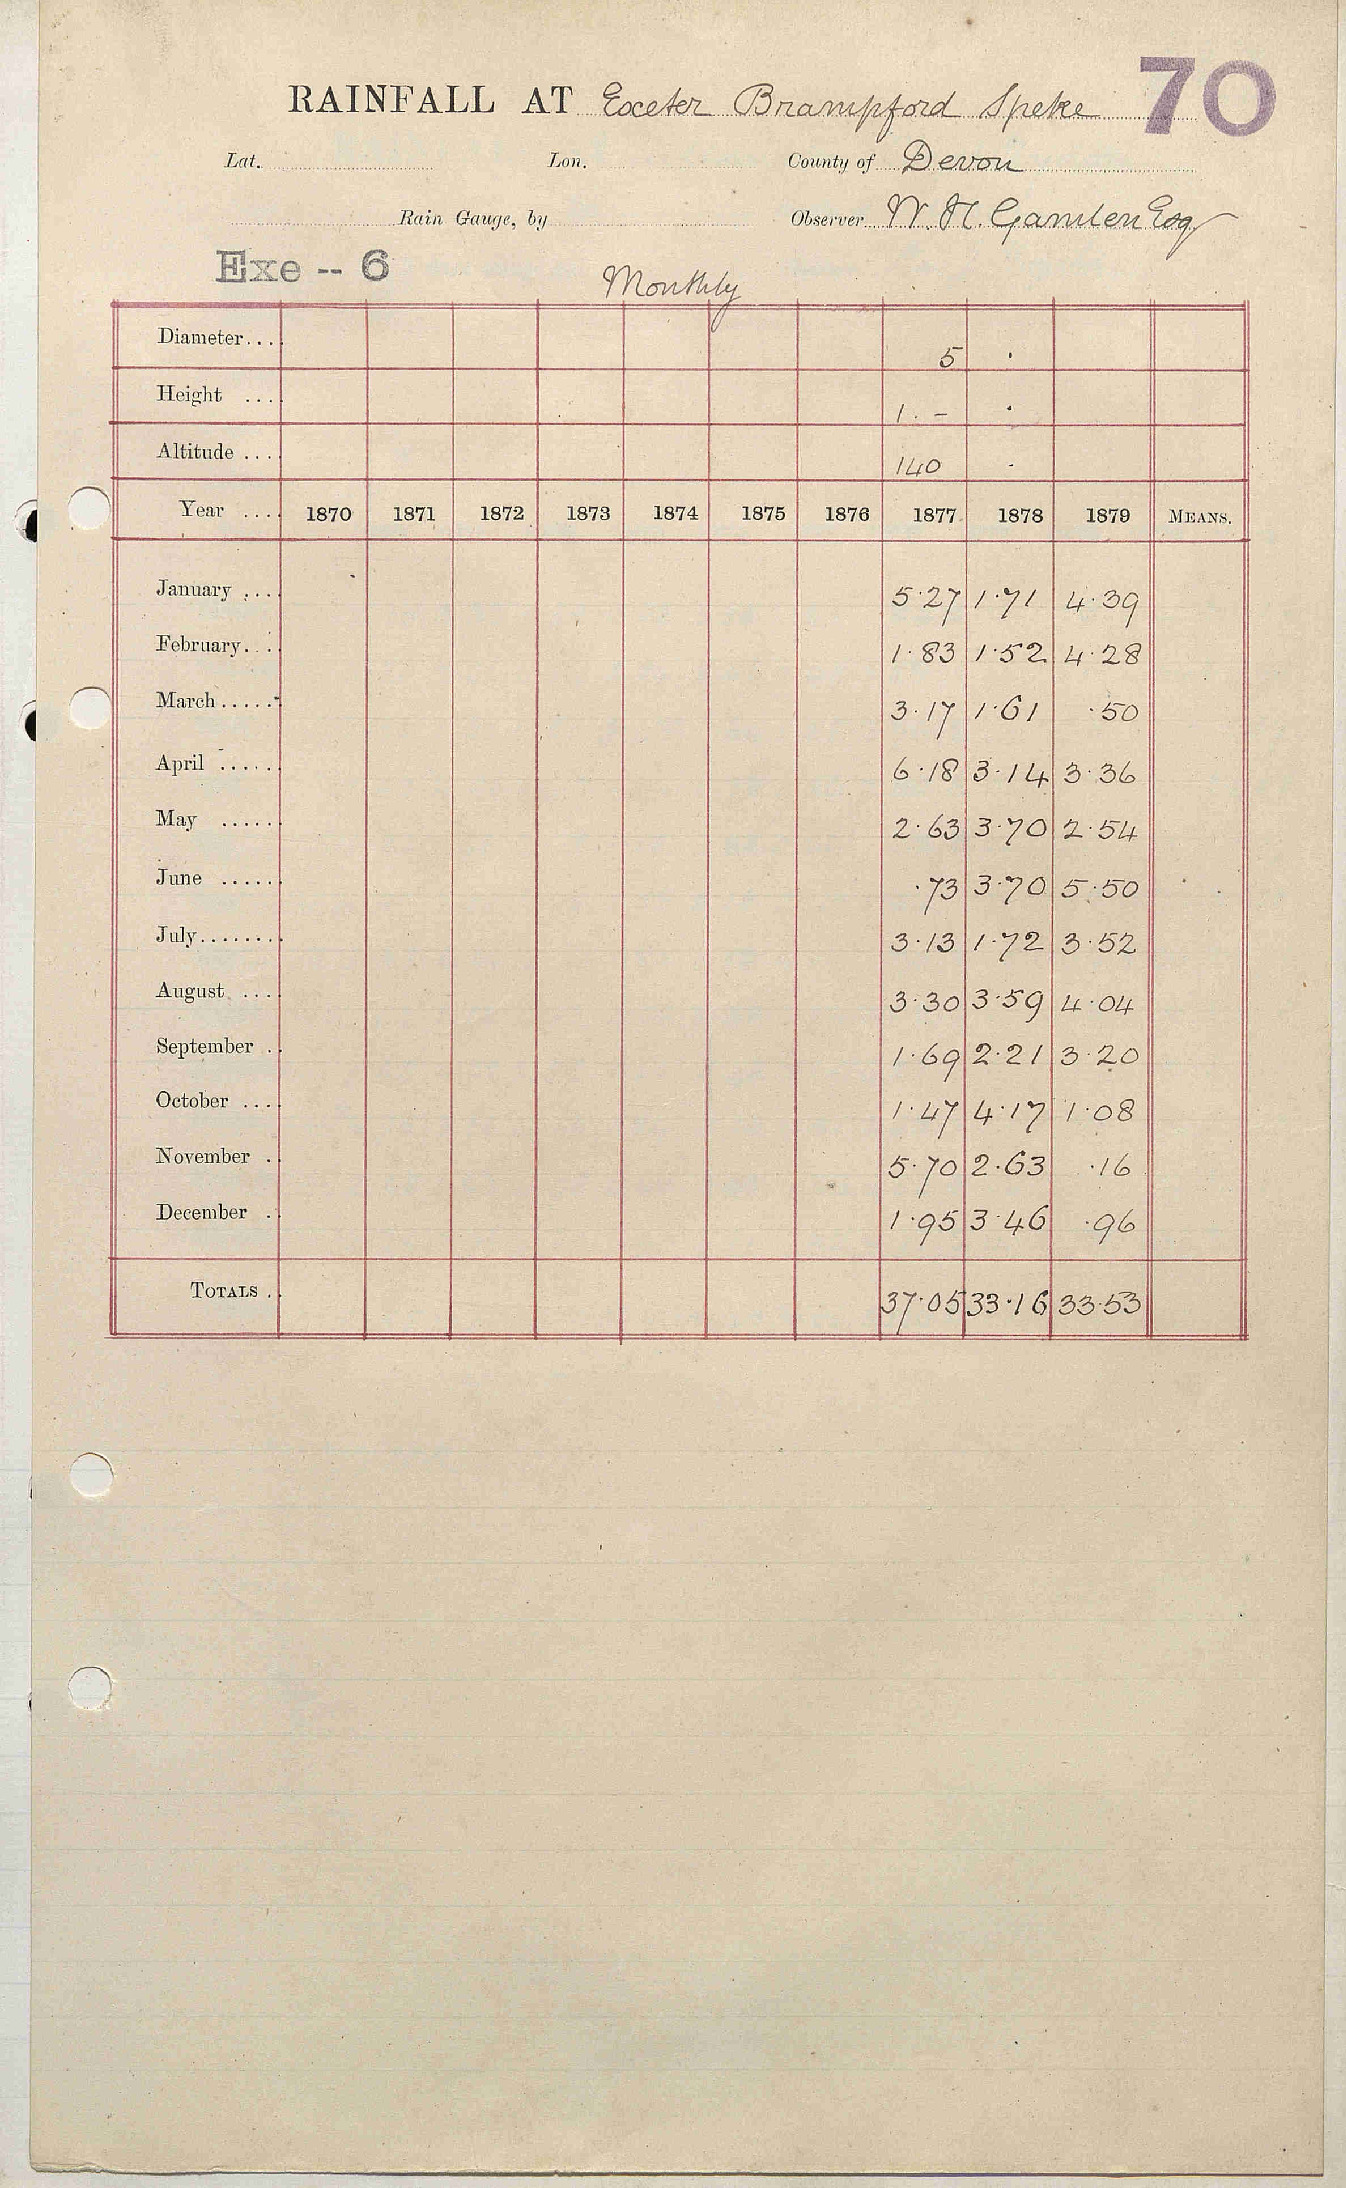 RAINFALL AT Exeter Brampford Speke 70
Lat. Lon. County of Devon
Rain Gauge, by Observer W. H. Gamlen Esq
Exe -- 6
Monthly
Diameter... 5 .
Height ... 1 . - .
Altitude ... 140 .
Year .... 1870 1871 1872 1873 1874 1875 1876 1877 1878 1879 MEANS.
January .... 5.27 1.71 4.39
February... 1.83 1.52 4.28
March...... 3.17 1.61 .50
April ...... 6.18 3.14 3.36
May ...... 2.63 3.70 2.54
June ...... .73 3.70 5.50
July........ 3.13 1.72 3.52
August .... 3.30 3.59 4.04
September .. 1.69 2.21 3.20
October .... 1.47 4.17 1.08
November .. 5.70 2.63 .16
December .. 1.95 3.46 .96
TOTALS .. 37.05 33.16 33.53